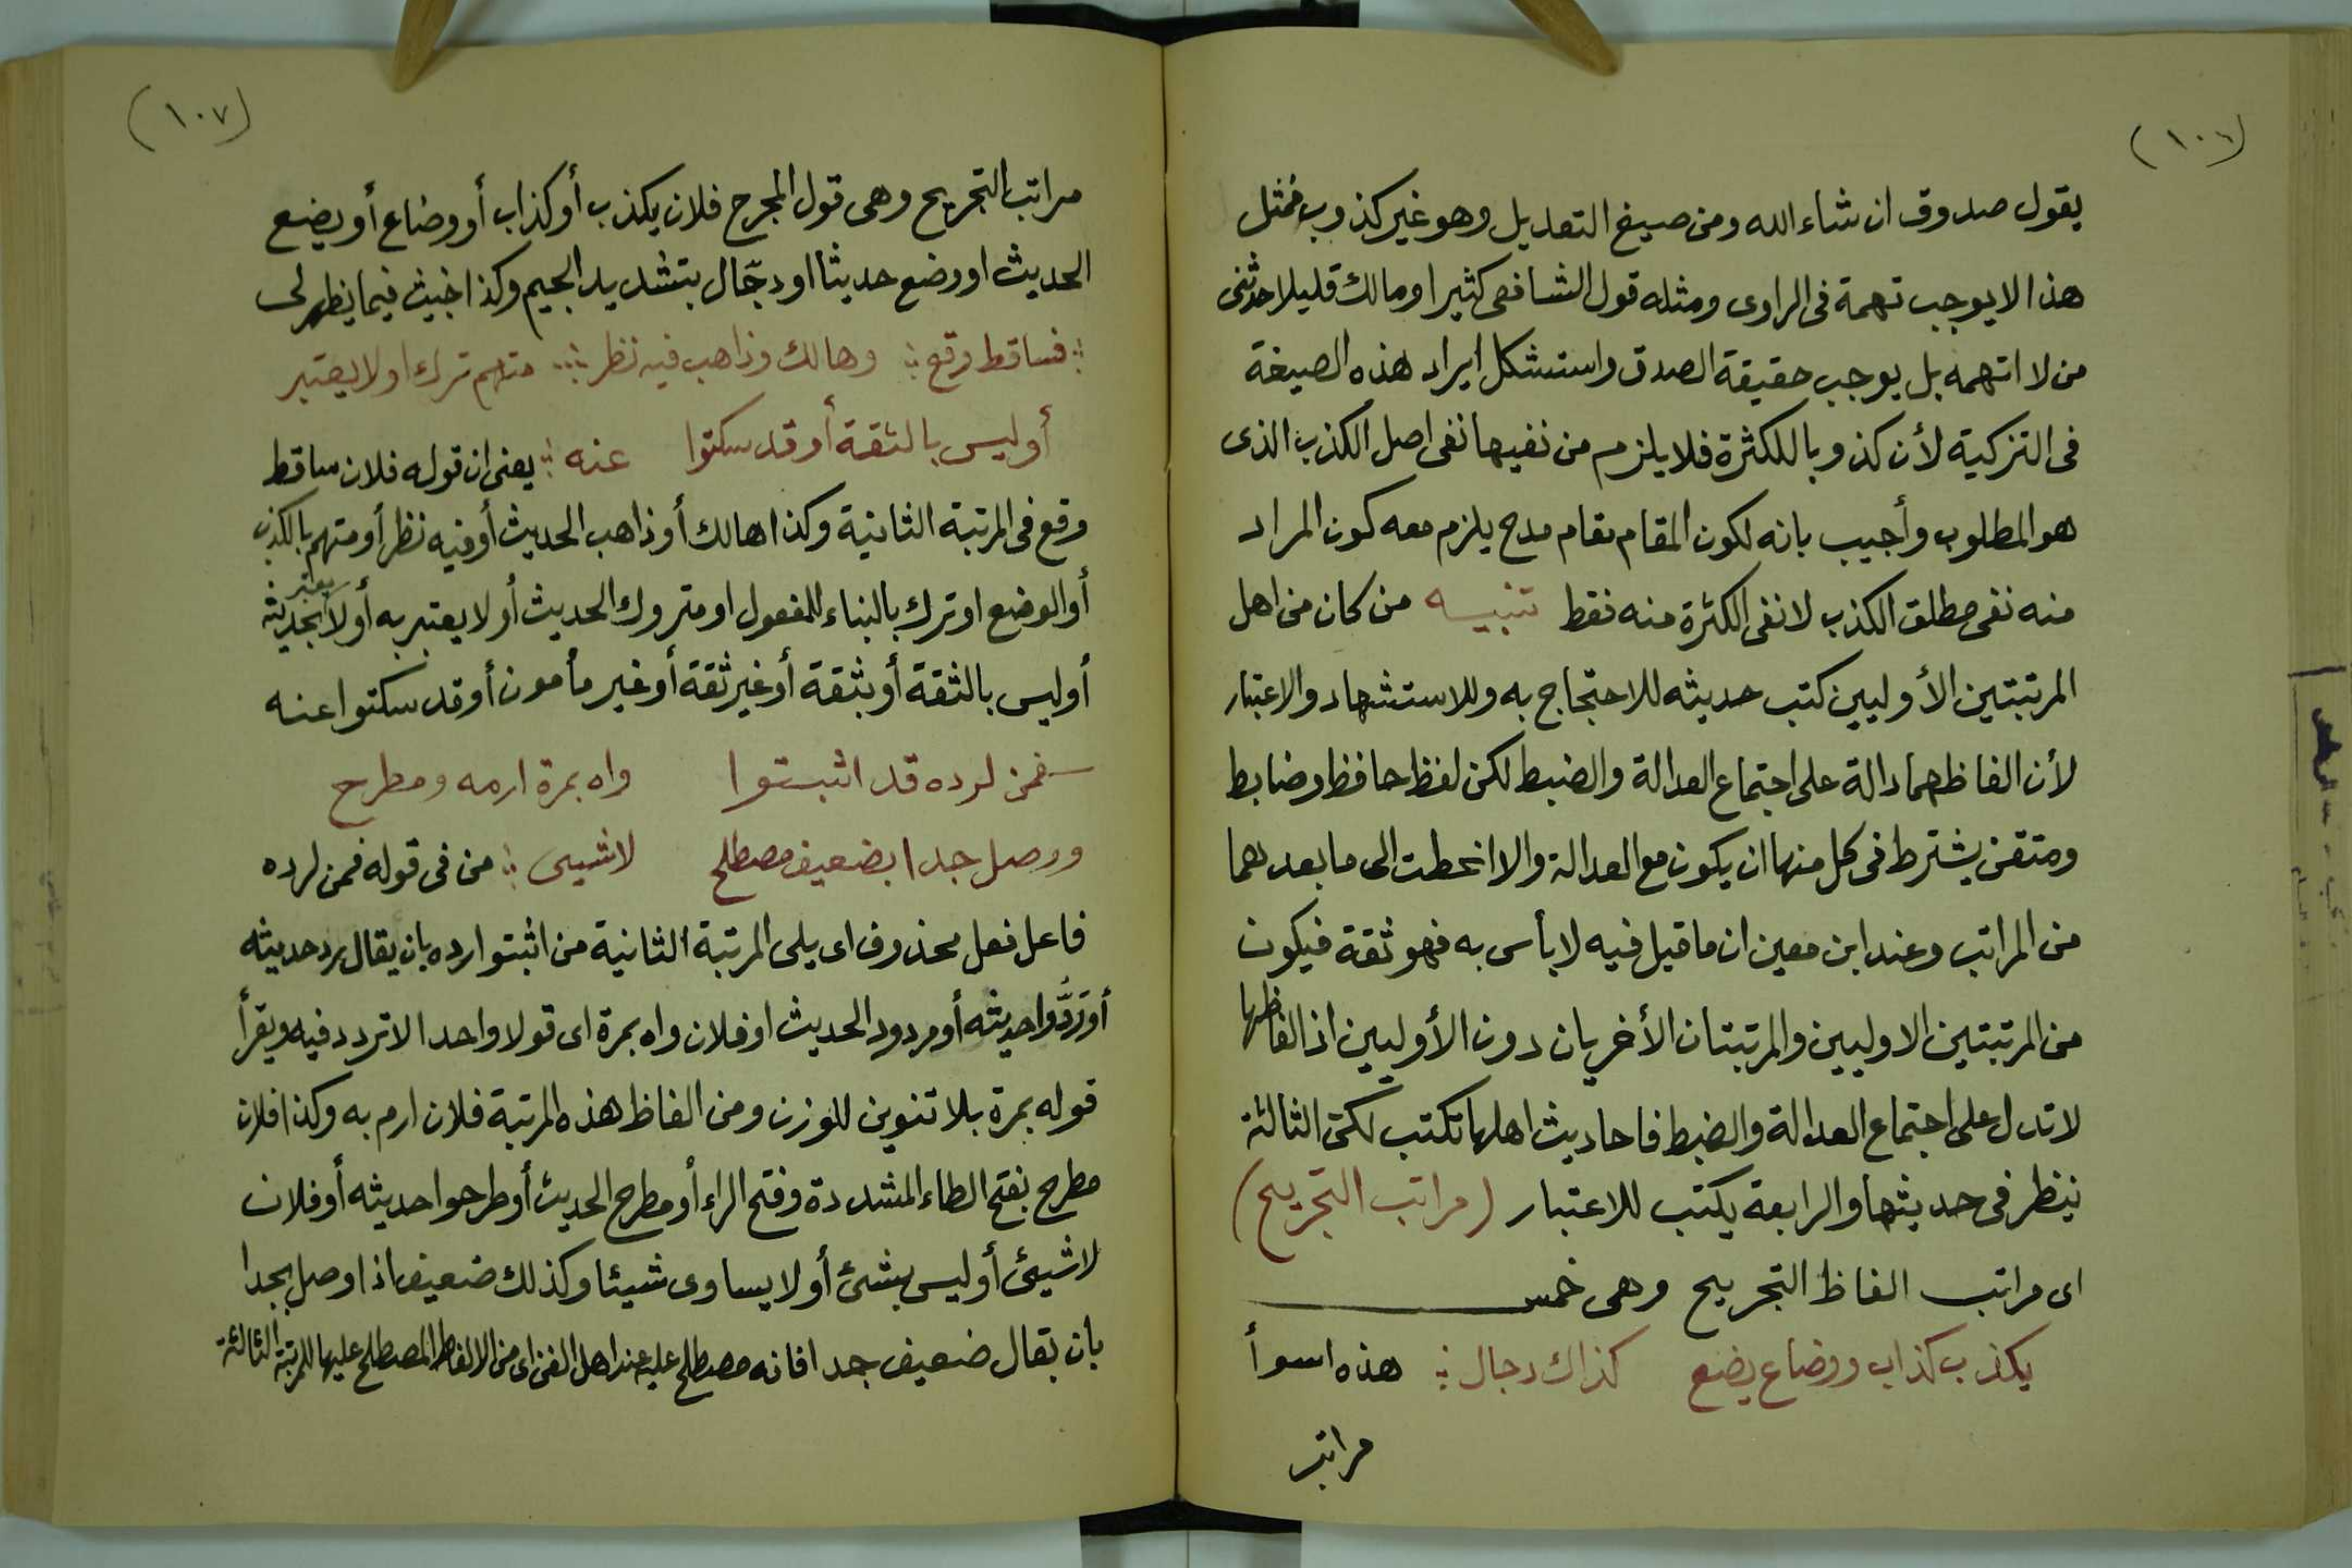 (١٠٦)
يقول صدوق ان شاء الله ومن صيغ التعديل وهو غير كذوب فمثل
هذا لا يوجب تهمة فى الراوى ومثله قول الشافعى كثيرا ومالك قليلا حدثنى
من لا اتهمه بل يوجب حقيقة الصدق واستشكل ايراد هذه الصيغة
فى التزكية لأن كذوبا للكثرة فلا يلزم من نفيها نفى اصل الكذب الذى
هو المطلوب وأجيب بانه لكون المقام مقام مدح يلزم معه كون المراد
منه نفى مطلق الكذب لا نفى الكثرة منه فقط تنبيه من كان من اهل
المرتبتين الأوليين كتب حديثه للاحتجاج به وللاستشهاد والاعتبار
لأن الفاظهما دالة على اجتماع العدالة والضبط لكن لفظ حافظ وضابط
ومتقن يشترط فى كل منها ان يكون مع العدالة والا انحطت الى ما بعدهما
من المراتب وعند ابن معين ان ما قيل فيه لا بأس به فهو ثقة فيكون
من المرتبتين الاوليين والمرتبتان الأخريان دون الأوليين اذ الفاظها
لا تدل على اجتماع العدالة والضبط فاحاديث اهلها تكتب لكن الثالثة
ينظر فى حديثها والرابعة يكتب للاعتبار (مراتب التجريح)
اى مراتب الفاظ التجريح وهى خمس
يكذب كذاب ووضاع يضع كذاك دجال ؞ هذه اسوأ
مراتب
(١٠٧)
مراتب التجريح وهى قول المجرح فلان يكذب أو كذاب أو وضاع أو يضع
الحديث او وضع حديثا او دجّال بتشديد الجيم وكذا خبيث فيما يظهر لى
؞ فساقط وقع ؞ وهالك وذاهب فيه نظر ؞ متهم ترك او لا يعتبر
أو ليس بالثقة أو قد سكتوا عنه ؞ يعنى ان قوله فلان ساقط
وقع فى المرتبة الثانية وكذا هالك أو ذاهب الحديث أو فيه نظر أو متهم بالكذب
أو الوضع او ترك بالبناء للمفعول او متروك الحديث أو لا يعتبر به أو لا يعتبر بحديثه
أو ليس بالثقة أو بثقة أو غير ثقة أو غير مأمون أو قد سكتوا عنه
فمن لرده قد اثبتوا واه بمرة ارمه ومطرح
ووصل جدا بضعيف مصطلح لا شيئ ؞ من فى قوله فمن لرده
فاعل فعل محذوف اى يلى المرتبة الثانية من اثبتوا رده بان يقال رد حديثه
أو رَدُّوا حديثه أو مردود الحديث او فلان واه بمرة اى قولا واحدا لا تردد فيه ويقرأ
قوله بمرة بلا تنوين للوزن ومن الفاظ هذه المرتبة فلان ارم به وكذا فلان
مطرح بفتح الطاء المشددة وفتح الراء أو مطرح الحديث أو طرحوا حديثه أو فلان
لا شيئ أو ليس بشئ أو لا يساوى شيئا وكذلك ضعيف اذا وصل بجدا
بان يقال ضعيف جدا فانه مصطلح عليه عند اهل الفن اى من الالفاظ المصطلح عليها للمرتبة الثالثة